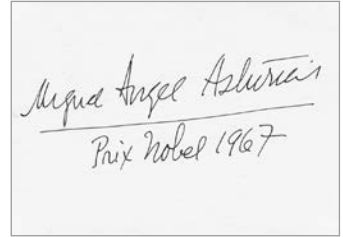 Miguel Angel Asturias
Prix Nobel 1967